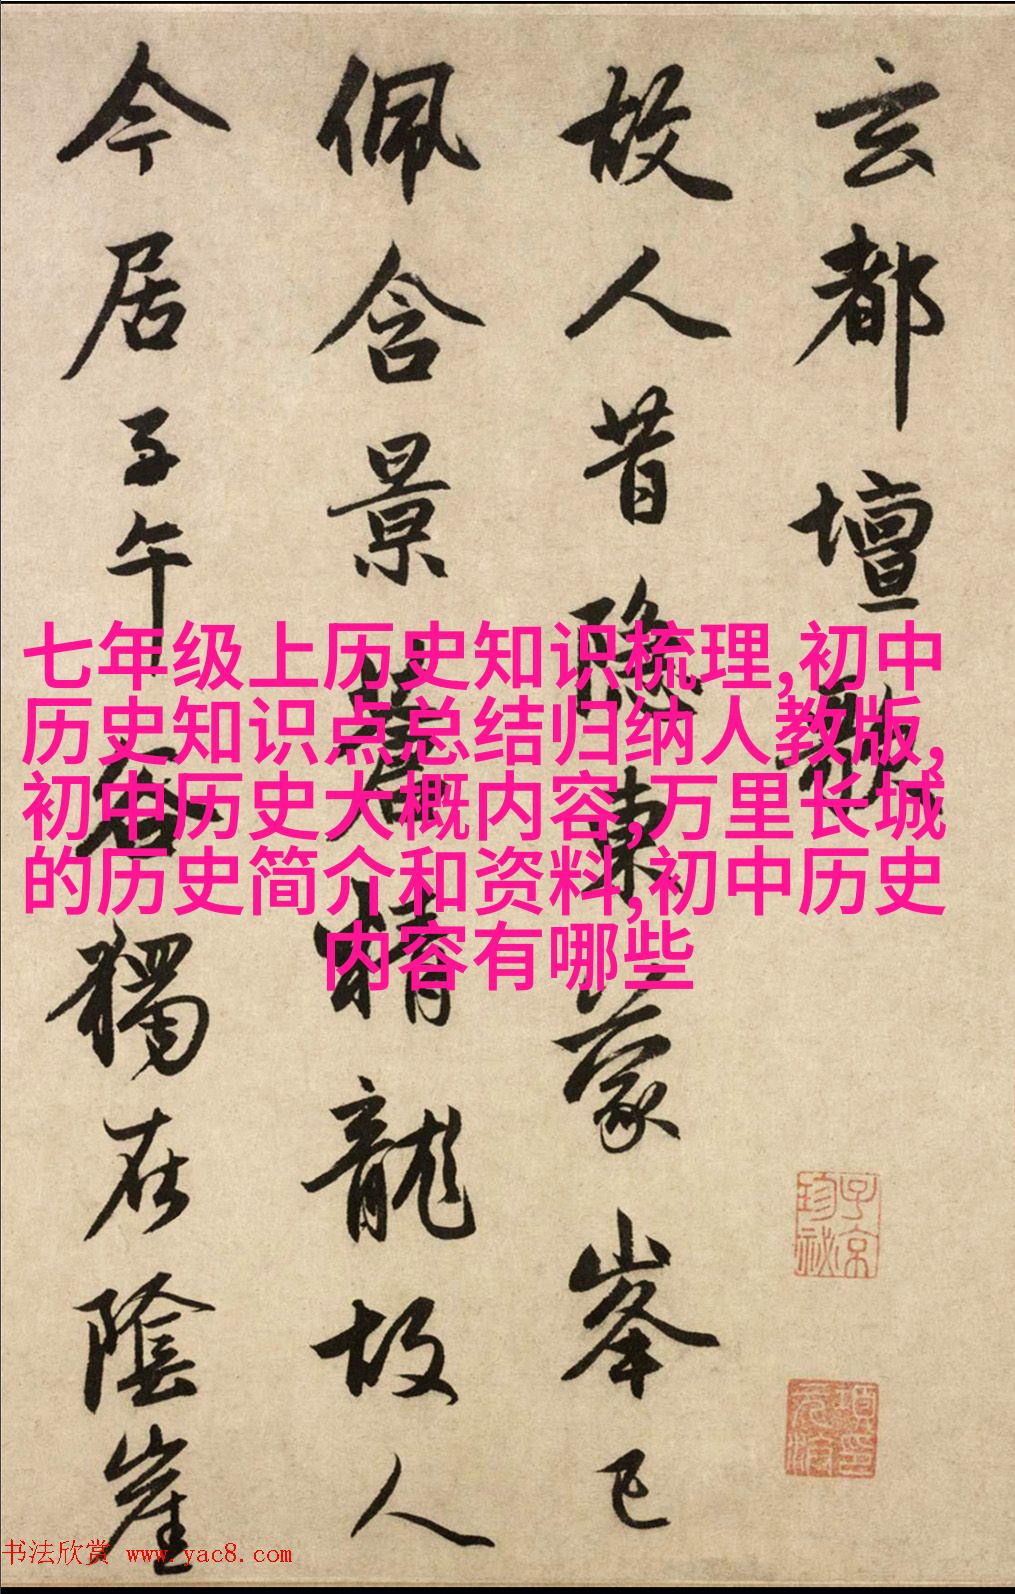 玄都壇歌
故人昔隱東蒙峯已
佩含景蒼精龍故人
今居子午谷獨在陰崖
七年级上历史知识梳理,初中
历史知识点总结归纳人教版,
初中历史大概内容,万里长城
的历史简介和资料,初中历史
内容有哪些
子京
珍祕
书法欣赏 www.yac8.com